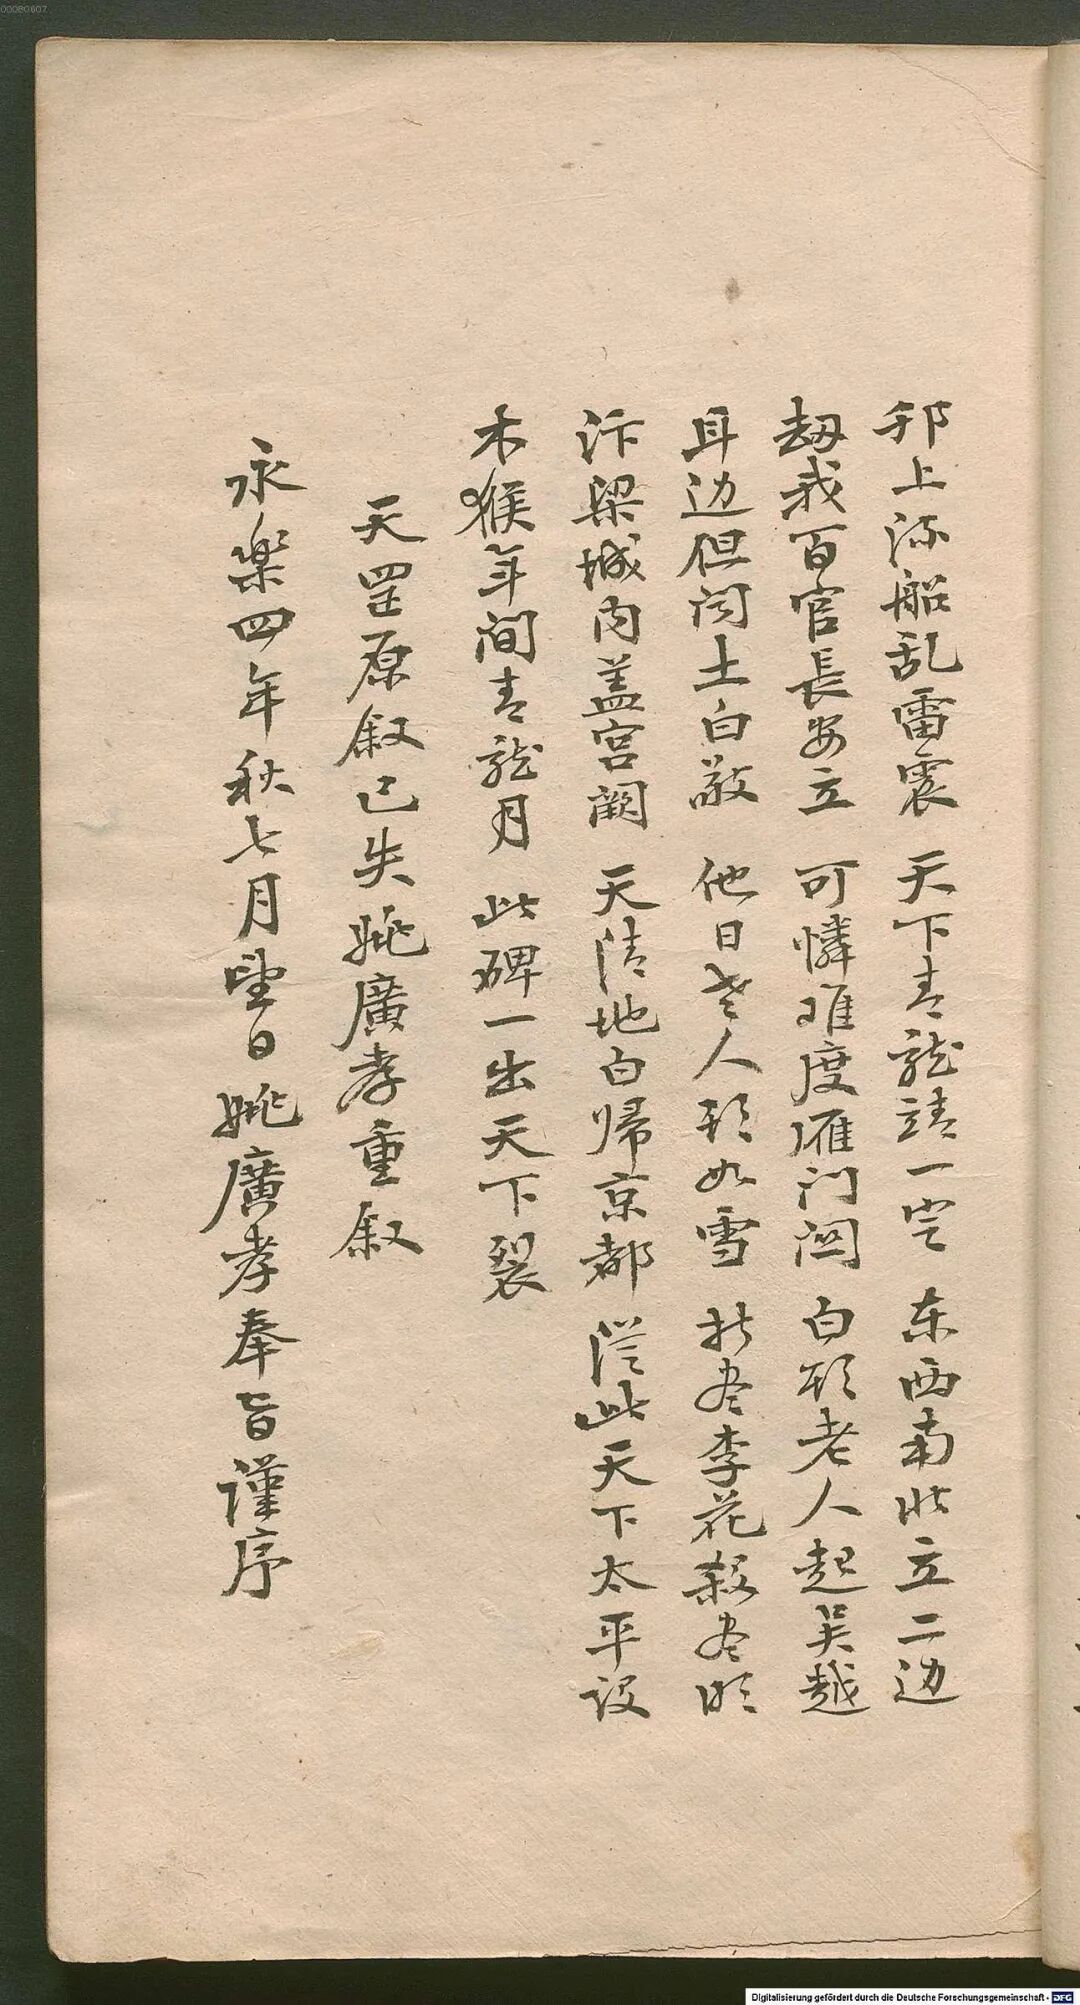 00080607
邗上流船乱雷震 天下青龍靖一宅 东西南北立二边
劫我百官長安立 可憐难度雁门関 白头老人起吴越
耳边但闻土白敲 他日老人头如雪 折尽李花殺尽
汴梁城内盖宫阙 天清地白归京都 從此天下太平設
木猴年间青龍月 此碑一出天下裂
天罡原叙已失姚廣孝重叙
永樂四年秋七月望日姚廣孝奉旨谨序
Digitalisierung gefördert durch die Deutsche Forschungsgemeinschaft - DFG